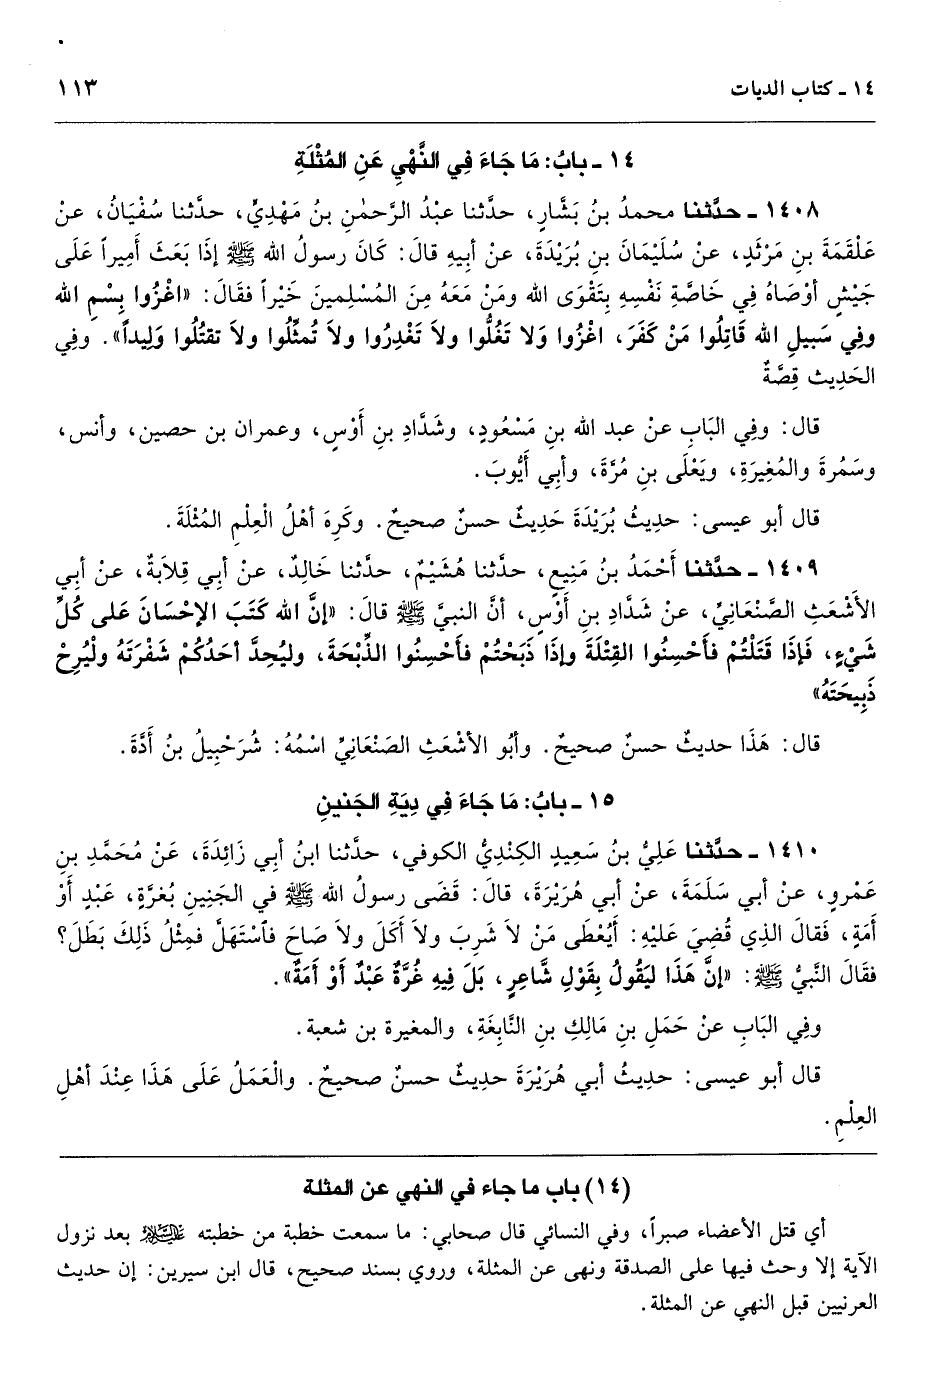 ١٤ ـ كتاب الديات
١١٣
١٤ ـ بابُ: مَا جَاءَ فِي النَّهْيِ عَنِ المُثْلَةِ
١٤٠٨ ـ حدَّثنا محمدُ بنُ بَشَّارٍ، حدَّثنا عبْدُ الرَّحمٰنِ بنُ مَهْدِيٍّ، حدَّثنا سُفْيَانُ، عنْ
عَلْقَمَةَ بنِ مَرْثَدٍ، عنْ سُلَيْمَانَ بنِ بُرَيْدَةَ، عنْ أبيهِ قالَ: كَانَ رسولُ الله ﷺ إذَا بَعَثَ أمِيراً عَلَى
جَيْشٍ أوْصَاهُ فِي خَاصَّةِ نَفْسِهِ بِتَقْوَى الله ومَنْ مَعَهُ مِنَ المُسْلِمينَ خَيْراً فقَالَ: «اغْزُوا بِسْمِ الله
وفِي سَبيلِ الله قَاتِلُوا مَنْ كَفَرَ، اغْزُوا وَلا تَغُلُّوا ولاَ تَغْدِرُوا ولاَ تُمثِّلُوا ولاَ تقتُلُوا وَلِيداً». وفِي
الحَدِيث قِصَّةٌ
قال: وفِي البَابِ عنْ عبد الله بنِ مَسْعُودٍ، وشَدَّادِ بنِ أَوْسٍ، وعمران بن حصين، وأنس،
وسَمُرةَ والمُغِيرَةِ، ويَعْلَى بنِ مُرَّةَ، وأبي أَيُّوبَ.
قال أبو عيسى: حديثُ بُرَيْدَةَ حَدِيثٌ حسنٌ صحيحٌ. وكَرِهَ أهْلُ الْعِلْمِ المُثْلَةَ.
١٤٠٩ ـ حدَّثنا أَحْمَدُ بنُ مَنِيعٍ، حدَّثنا هُشَيْمٌ، حدَّثنا خَالِدٌ، عنْ أبي قِلابَةٌ، عن أبي
الأَشْعَثِ الصَّنْعَانِيِّ، عنْ شَدَّادِ بنِ أَوْسٍ، أنَّ النبيَّ ﷺ قالَ: «إنَّ الله كَتَبَ الإحْسَانَ على كُلِّ
شَيْءٍ، فَإذَا قَتَلْتُمْ فَأَحْسِنُوا القِتْلَةَ وإذَا ذَبَحْتُمْ فأَحْسِنُوا الذِّبْحَةَ، وليُحِدَّ أحَدُكُمْ شَفْرَتَهُ ولْيُرِحْ
ذَبِيحَتَهُ»
قال: هَذَا حديثٌ حسنٌ صحيحٌ. وأبُو الأشْعَثِ الصَنْعَانِيِّ اسْمُهُ: شُرَحْبِيلُ بنُ أدَّةَ.
١٥ ـ بابُ: مَا جَاءَ فِي دِيَةِ الجَنينِ
١٤١٠ ـ حدَّثنا عَلِيُّ بنُ سَعِيدٍ الكِنْدِيُّ الكوفي، حدَّثنا ابنُ أبي زَائِدَةَ، عَنْ مُحَمَّدِ بنِ
عَمْروٍ، عنْ أبي سَلَمَةَ، عنْ أبي هُرَيْرَةَ، قالَ: قَضَى رسولُ الله ﷺ في الجَنِينِ بُغرَّةٍ، عَبْدٍ أوْ
أمَةٍ، فَقالَ الذِي قُضِيَ عَلَيْهِ: أيُعْطَى مَنْ لاَ شَرِبَ ولاَ أَكَلَ ولاَ صَاحَ فاَسْتَهَلَّ فمِثْلُ ذَلِكَ بَطَلَ؟
فقَالَ النَّبيُّ ﷺ: «إنَّ هَذَا ليَقُولُ بِقَوْلِ شَّاعِرٍ، بَلَ فِيهِ غُرَّةٌ عَبْدٌ أوْ أمَةٌ».
وفِي البَابِ عنْ حَمَلِ بنِ مَالِكِ بنِ النَّابِغَةِ، والمغيرة بن شعبة.
قال أبو عيسى: حديثُ أبي هُرَيْرَةَ حديثٌ حسنٌ صحيحٌ. والْعَمَلُ عَلَى هَذَا عِنْدَ أهْلِ
العِلْمِ.
(١٤) باب ما جاء في النهي عن المثلة
أي قتل الأعضاء صبراً، وفي النسائي قال صحابي: ما سمعت خطبة من خطبته عليه السلام بعد نزول
الآية إلا وحث فيها على الصدقة ونهى عن المثلة، وروي بسند صحيح، قال ابن سيرين: إن حديث
العرنيين قبل النهي عن المثلة.